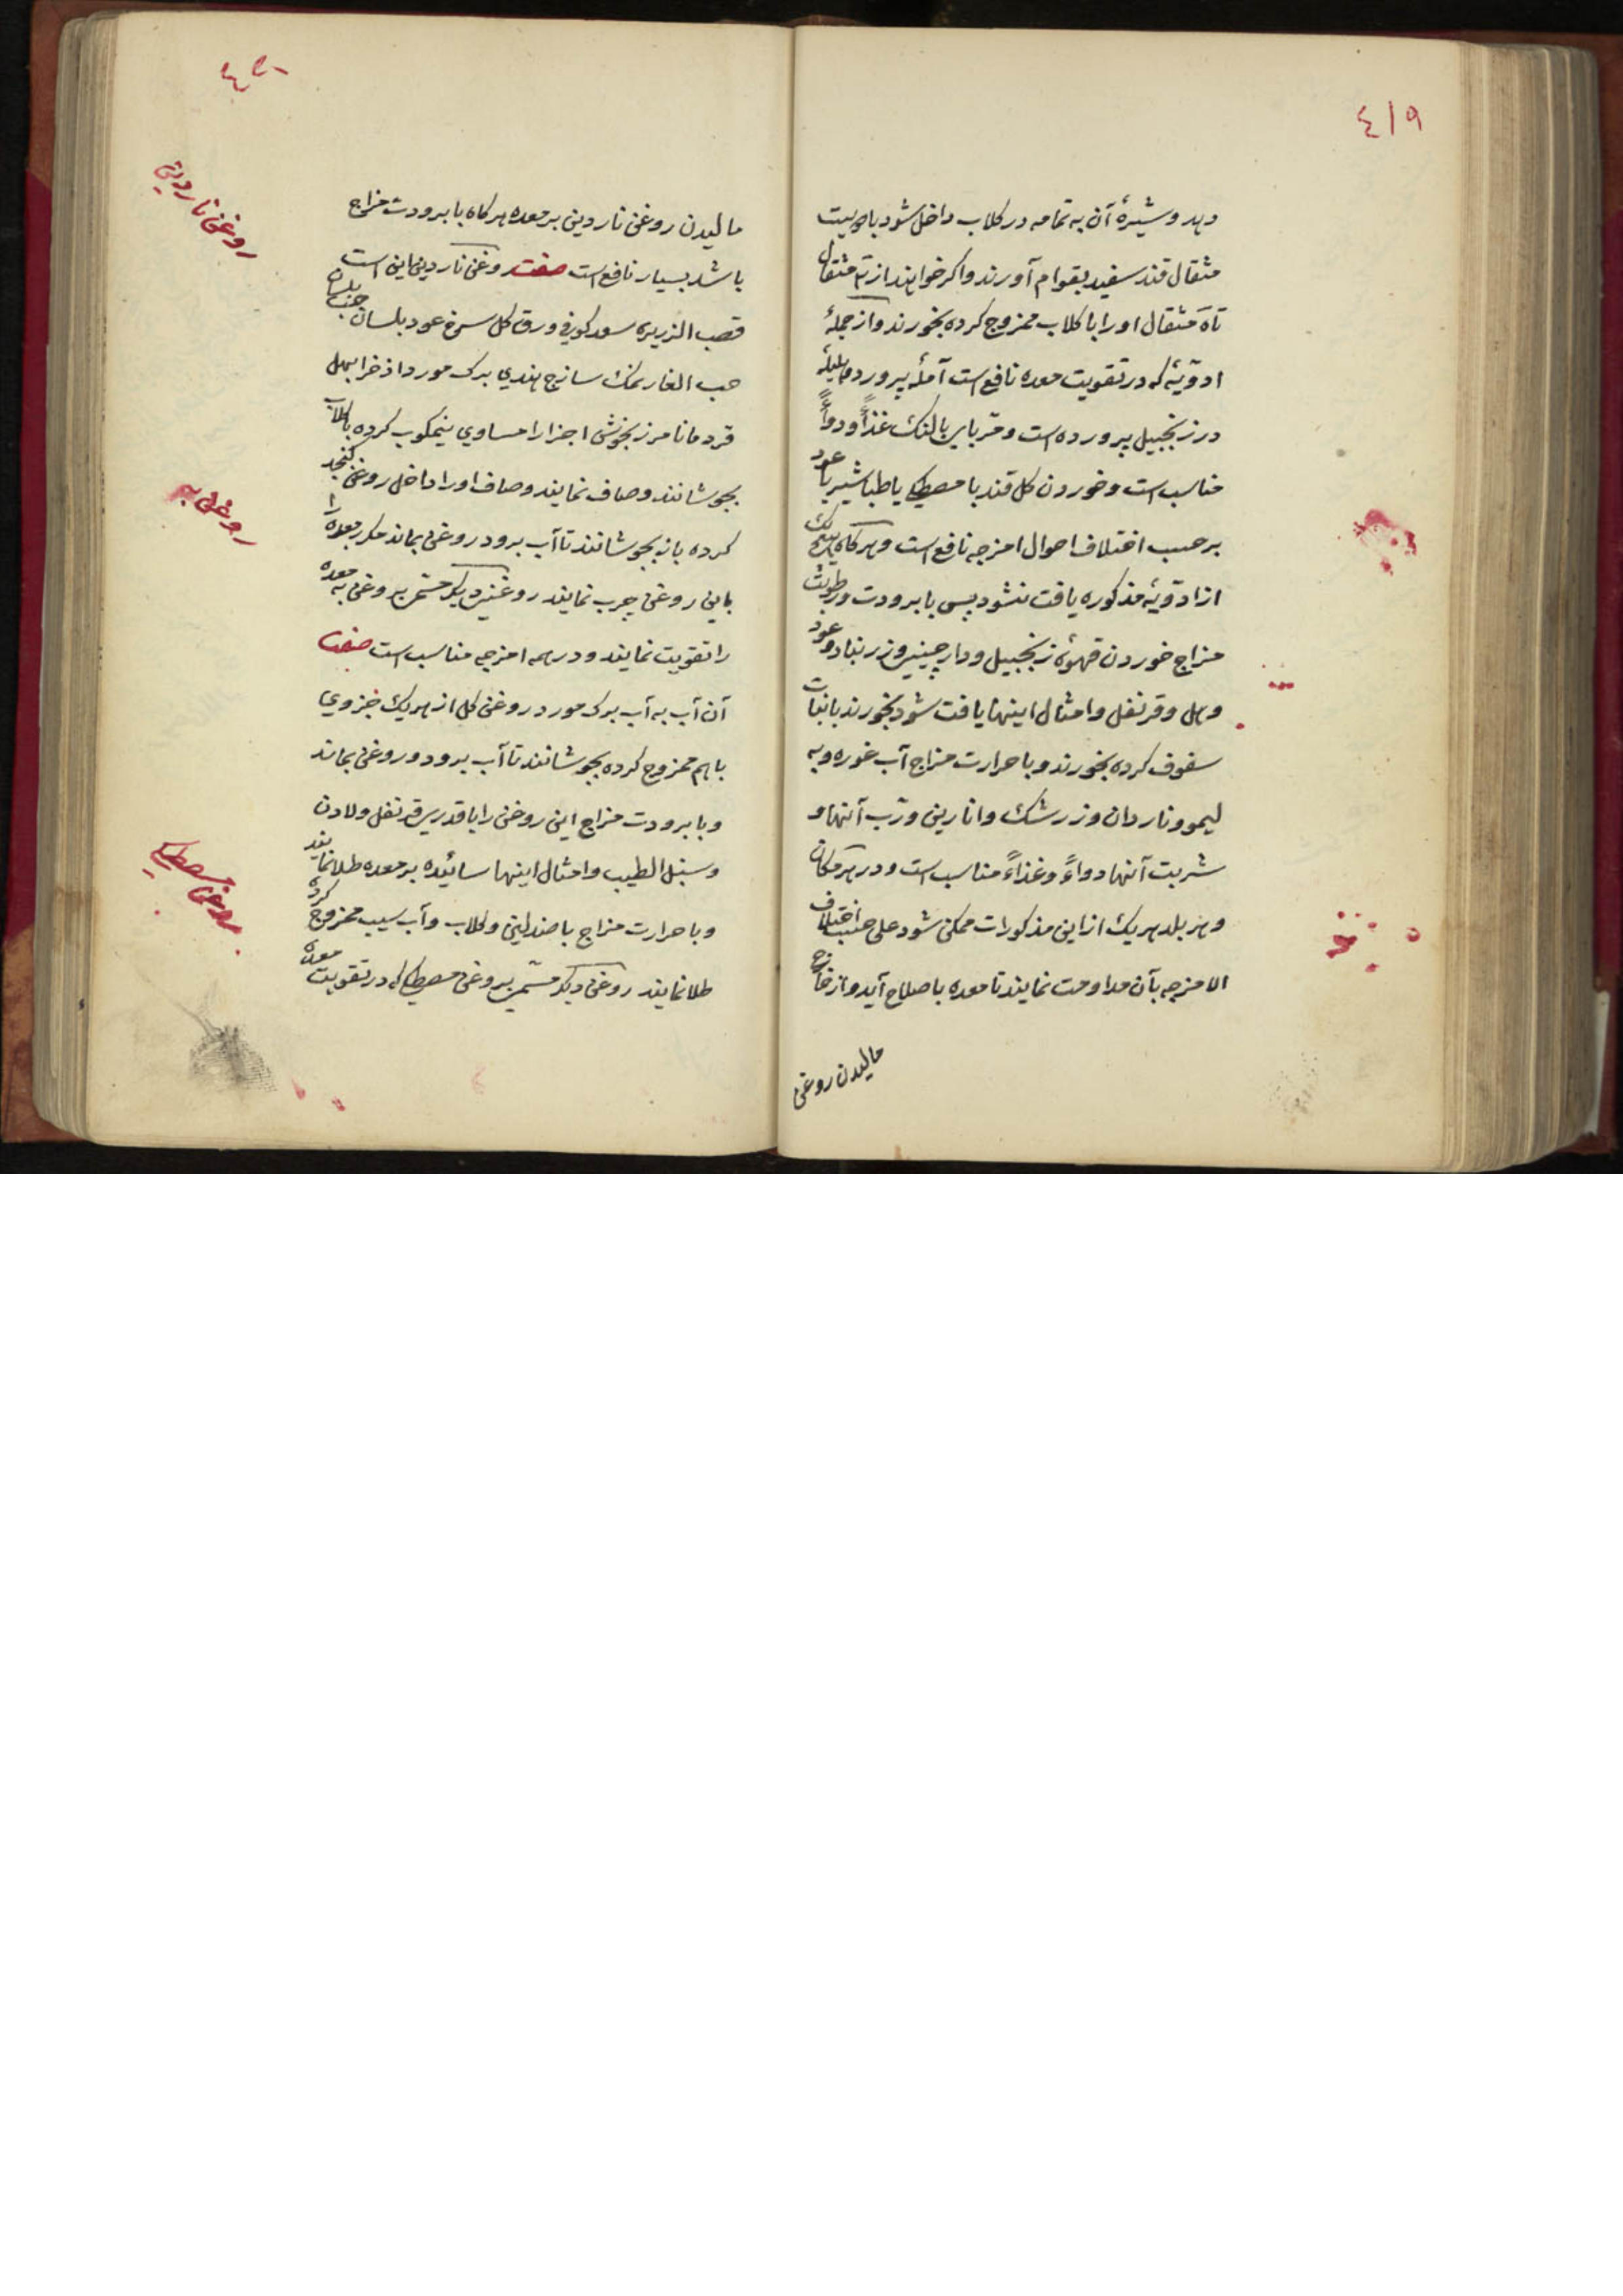 ٤١٩
دهد و شیرهٔ آن به تمامه در کلاب داخل شود با دویست
مثقال قند سفید بقوام آورند و اکر خواهند از مثقال
تا مثقال او را با کلاب ممزوج کرده بخورند و از جملهٔ
ادویهٔ که در تقویت معده نافع است آملهٔ پرورده و هلیلهٔ
در زنجبیل پرورده است و مربای بالنک غذاءً و دواءً
مناسب است و خوردن کل قند با مصطکی یا طباشیر یا عود
بر حسب اختلاف احوال امزجه نافع است و هرکاه هیچیک
از ادویهٔ مذکوره یافت نشود پس با برودت و رطوبت
مزاج خوردن قهوهٔ زنجبیل و دارچینی و زرنباد و عود
و هل و قرنفل و امثال اینها یافت شود بخورند با نبات
سفوف کرده بخورند و با حرارت مزاج آب غوره و به
لیمو و ناردان و زرشک و انارین و رب آنها و
شربت آنها دواءً و غذاءً مناسب است و در هر مکان
و هر بلد هر یک از این مذکورات ممکن شود علی حسب اختلاف
الامزجه بآن مداومت نمایند تا معده باصلاح آید و از خارج
مالیدن روغن
٤٢٠
مالیدن روغن ناردین بر معده هرکاه با برودت مزاج
باشد بسیار نافع است صفت روغن ناردین این است
قصب الذریره سعد کوفی ورق کل سرخ عود بلسان حب بلسان
حب الغار نمک سازج هندي برک مورد اذخر ابهل
قردمانا مرزنجوش اجزا را مساوي نیمکوب کرده با کلاب
بجوشانند و صاف نمایند و صاف او را داخل روغن کنجد
کرده باز بجوشانند تا آب برود روغن بماند مکرر معده را
باین روغن چرب نمایند روغنی دیکر مسمی بروغن به معده
را تقویت نمایند و در همه امزجه مناسب است صفت
آن آب به آب برک مورد روغن کل از هریک جزوي
باهم ممزوج کرده بجوشانند تا آب برود و روغن بماند
و با برودت مزاج این روغن را با قدری قرنفل و لادن
و سنبل الطیب و امثال اینها سائیده بر معده طلا نمایند
و با حرارت مزاج با صندلین و کلاب و آب سیب ممزوج کرده
طلا نمایند روغن دیکر مسمی بروغن مصطکی که در تقویت معده
روغن ناردین
روغن به
روغن مصطکی